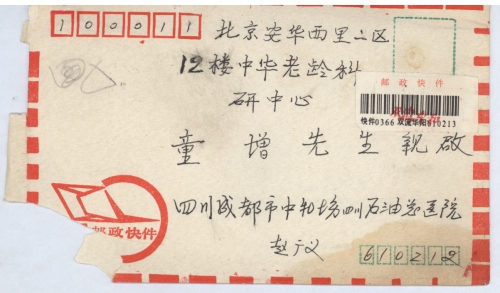 100011
北京安华西里二区
12楼中华老龄科
研中心
童增先生亲启
邮政快件
快件0366 双流华阳610213
邮政快件
四川成都市中和场四川石油总医院
赵广义
610212